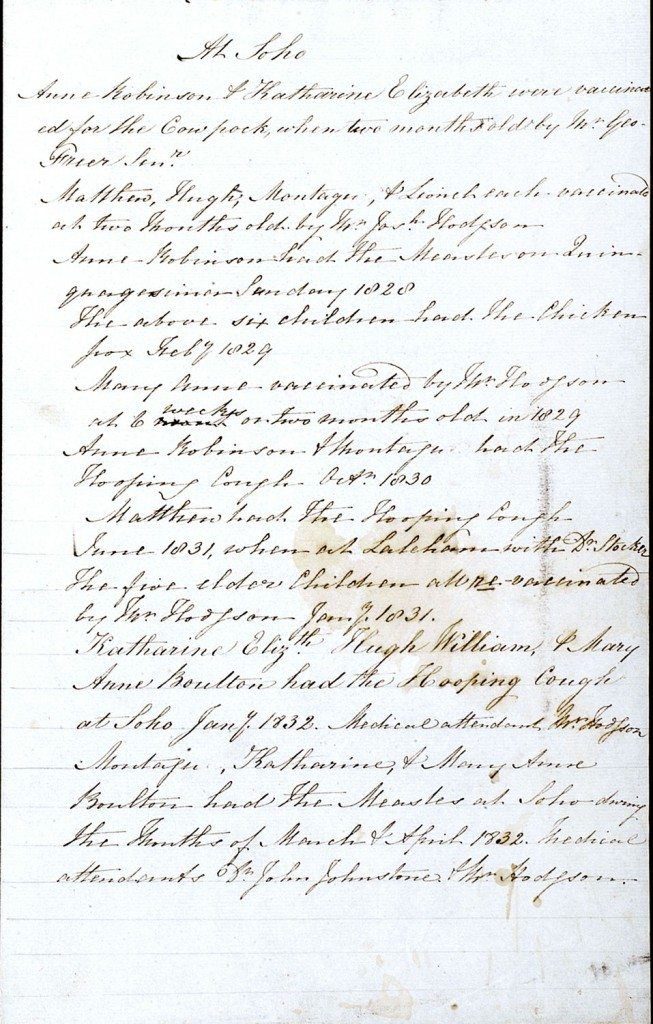 At Soho
Anne Robinson & Katharine Elizabeth were vaccinat
ed for the Cow pock, when two months old by Mr. Geo-
Freer Senr.
Matthew, Hugh, Montagu, & Lionel each vaccinated
at two Months old by Mr Josh. Hodgson
Anne Robinson had the Measles on Quin-
quagesima Sunday 1828
The above six children had the Chicken
pox Feby 1829
Mary Anne vaccinated by Mr Hodgson
weeks
at 6 or two months old in 1829
Anne Robinson & Montagu had the
Hooping Cough Octr. 1830
Matthew had the Hooping Cough
June 1831, when at Laleham with Dr. Stocker
The five elder Children all re-vaccinated
by Mr Hodgson Jany. 1831.
Katharine Elizth. Hugh William, & Mary
Anne Boulton had the Hooping Cough
at Soho Jany. 1832. Medical attendant Mr Hodgson
Montagu, Katharine, & Mary Anne
Boulton had the Measles at Soho during
the Months of March & April 1832. Medical
attendants Dr. John Johnstone & Mr Hodgson.